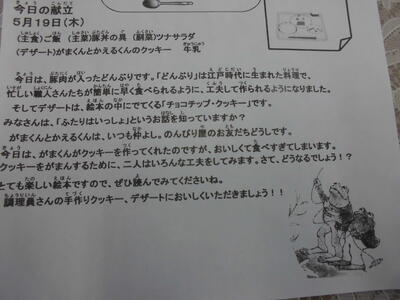 今日の献立
5月19日(木)
(主食)ご飯 (主菜)豚丼の具 (副菜)ツナサラダ
(デザート)がまくんとかえるくんのクッキー 牛乳
今日は、豚肉が入ったどんぶりです。「どんぶり」は江戸時代に生まれた料理で、
忙しい職人さんたちが簡単に早く食べられるように、工夫して作られるようになりました。
そしてデザートは、絵本の中にでてくる「チョコチップ・クッキー」です。
みなさんは、「ふたりはいっしょ」というお話を知っていますか?
がまくんとかえるくんは、いつも仲よし。のんびり屋のお友だちどうしです。
今日は、がまくんがクッキーを作ってくれたのですが、おいしくて食べすぎてしまいます。
クッキーをがまんするために、二人はいろんな工夫をしてみます。さて、どうなるでしょう!?
とても楽しい絵本ですので、ぜひ読んでみてくださいね。
調理員さんの手作りクッキー、デザートにおいしくいただきましょう!!